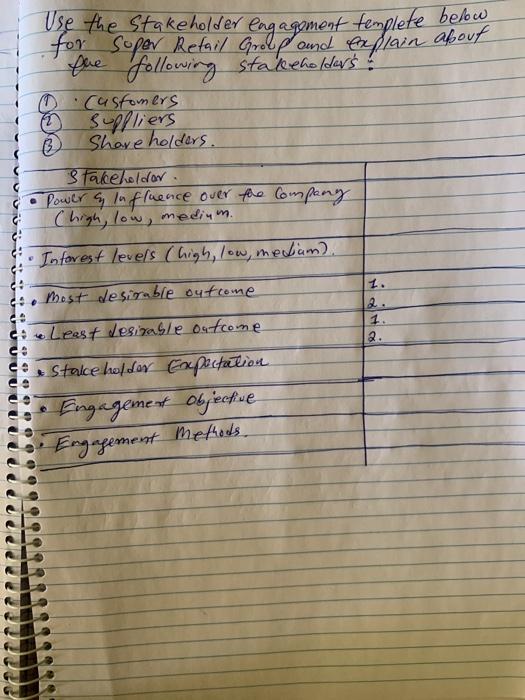 Use the Stakeholder engagement templete below
for Super Retail Group and explain about
the following stakeholders :
① · Customers
② Suppliers
③ Shareholders.
Stakeholder.
• Power & Influence over the Company
(high, low, medium.
• Interest levels (high, low, medium).
• Most desirable outcome
1.
2.
• Least desirable outcome
1.
2.
• Stakeholder Expectation
• Engagement Objective
• Engagement Methods.